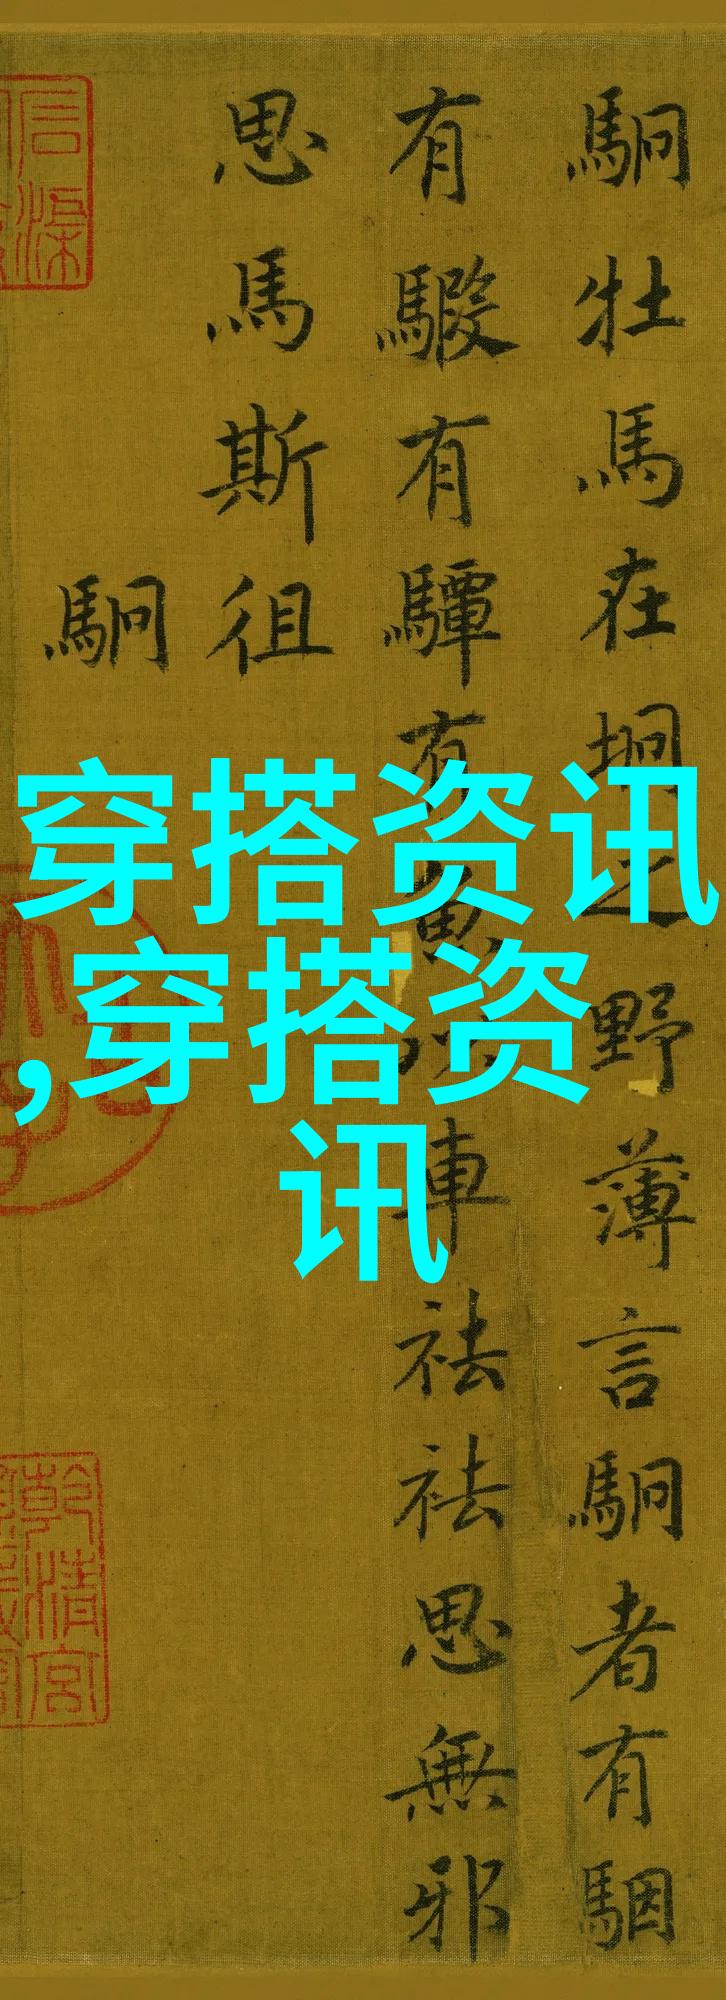 駉牡馬在坰之野薄言駉者有駰
有騢有驔有魚以車祛祛思無邪
思馬斯徂
駉
穿搭资讯
,穿搭资
讯
乾清宮